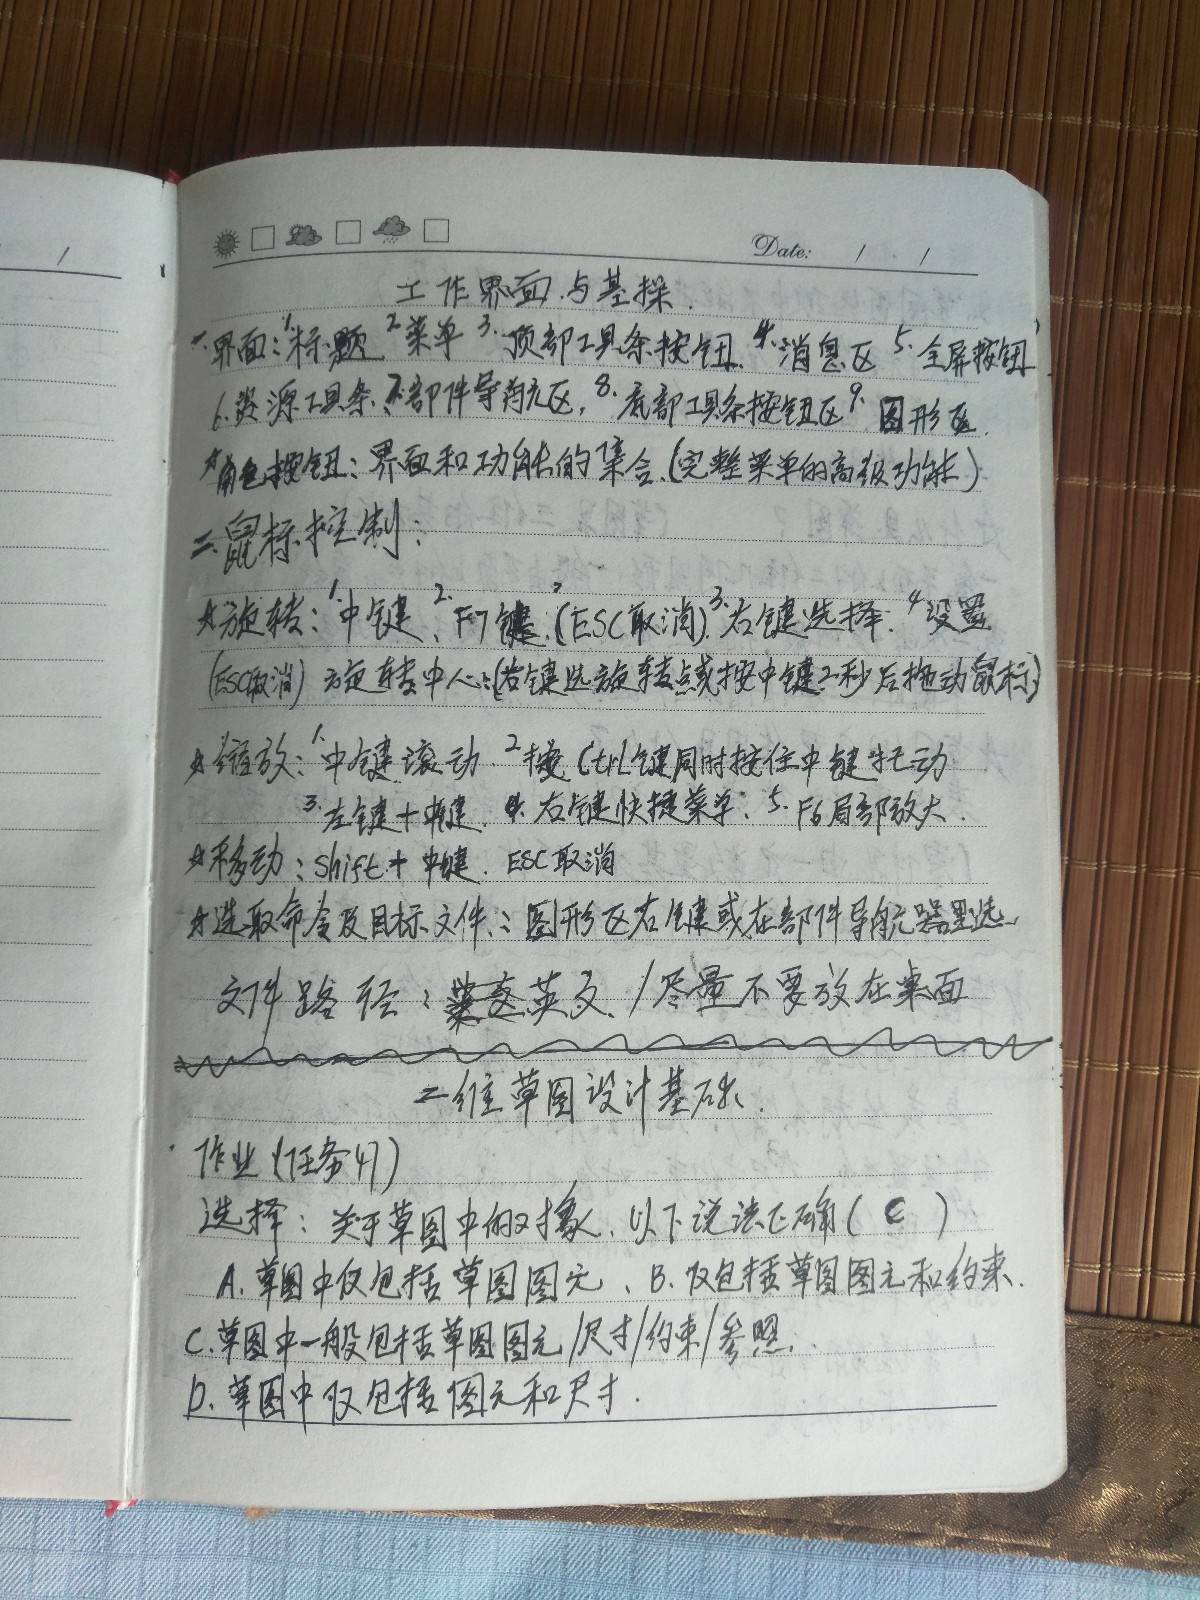 Date: / /
工作界面与基操.
一.界面:1.标题 2.菜单 3.顶部工具条按钮 4.消息区 5.全屏按钮
6.资源工具条、7.部件导航区,8.底部工具条按钮区9.图形区.
★角色按钮:界面和功能的集合.(完整菜单的高级功能)
二.鼠标控制:
★旋转:1.中键、2.F7键.(ESC取消)3.右键选择. 4.设置
(ESC取消) 旋转中心:(右键选旋转点或按中键2秒后拖动鼠标)
★缩放:1.中键滚动 2.按Ctrl键同时按住中键拖动
3.左键+中键. 4.右键快捷菜单. 5.F6局部放大.
★移动:Shift+中键. ESC取消
★选取命令及目标文件:图形区右键或在部件导航器里选
文件路径:英文./尽量不要放在桌面
二维草图设计基础.
作业(任务41)
选择:关于草图中的对象.以下说法正确(C)
A.草图中仅包括草图图元、B.仅包括草图图元和约束.
C.草图中一般包括草图图元/尺寸/约束/参照.
D.草图中仅包括图元和尺寸.